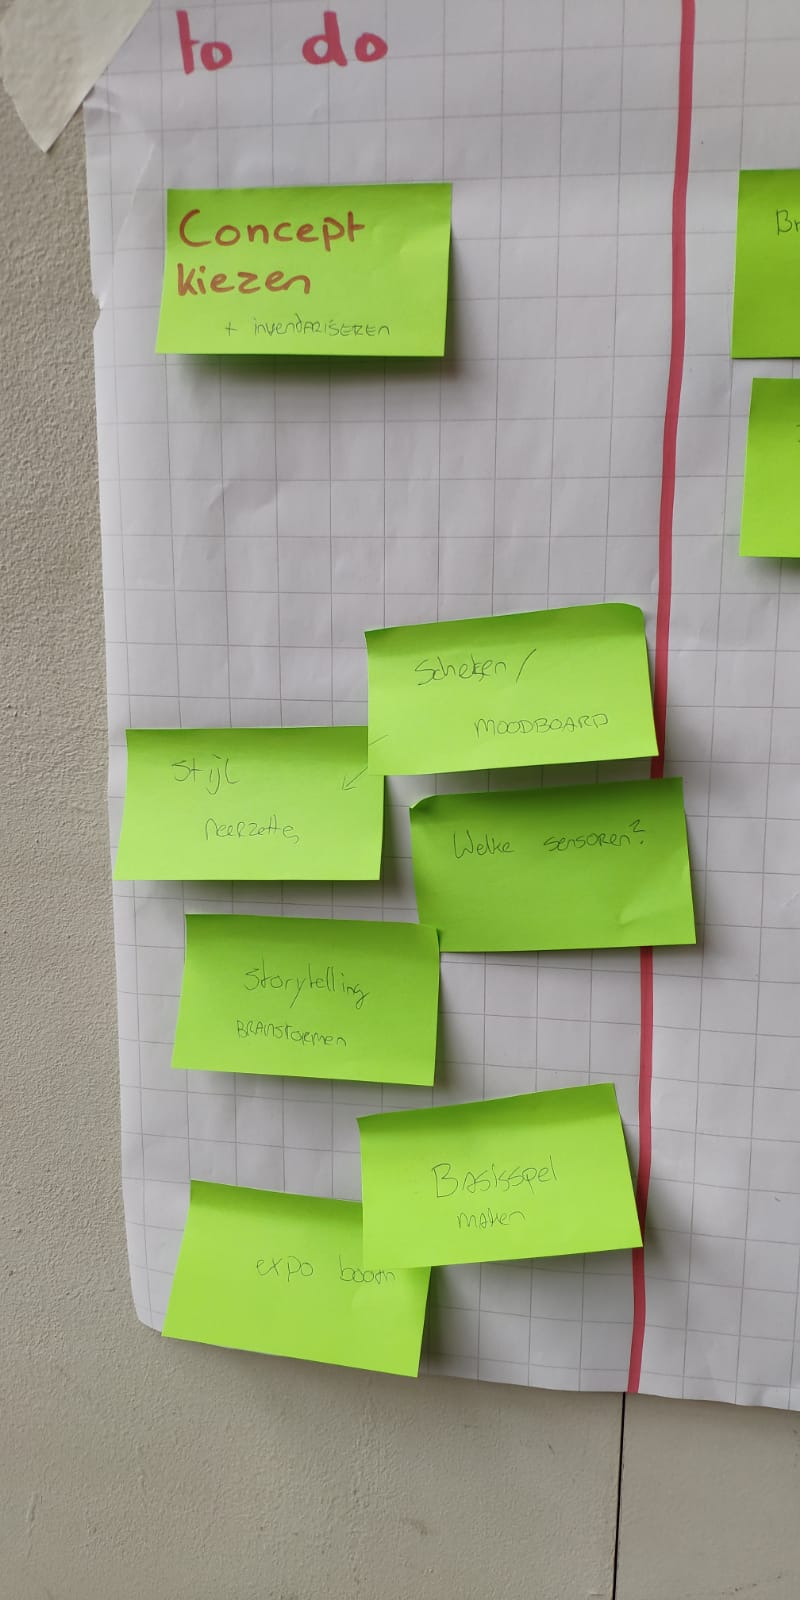 to do
Concept
kiezen
+ invendariseren
Schetsen /
MOODBOARD
Stijl
neerzetten
Welke sensoren?
Storytelling
BRAINstormen
Basisspel
maken
expo booth
Br